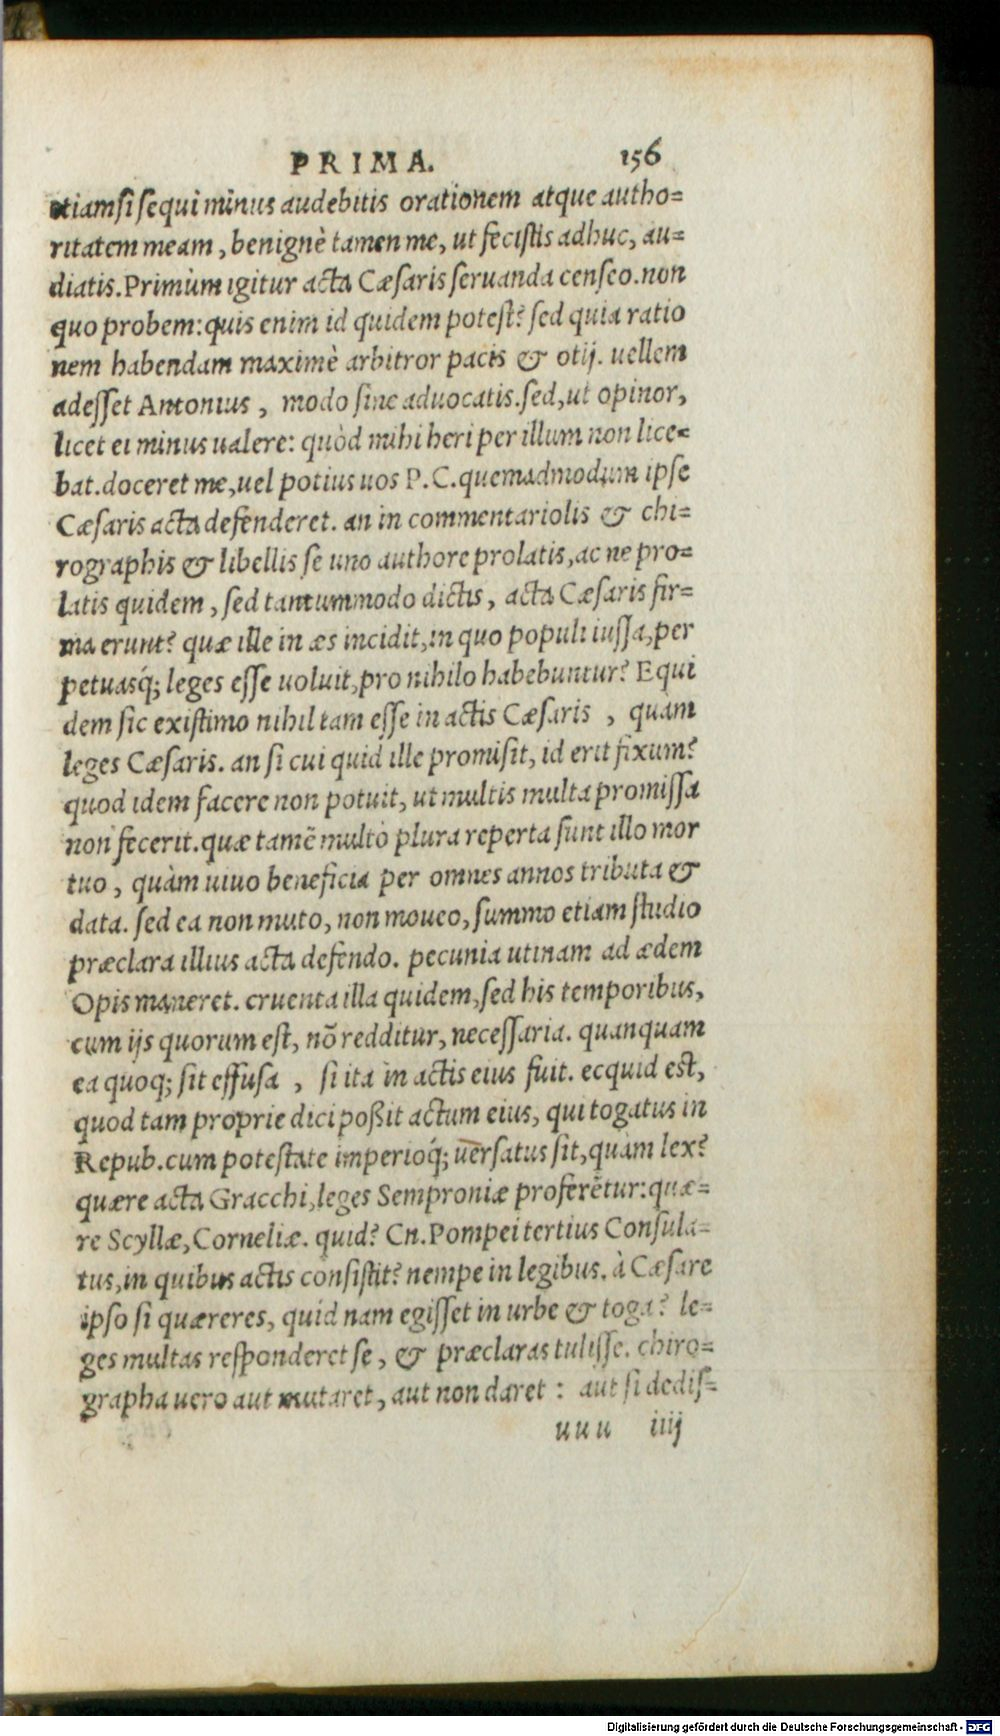 PRIMA. 156
etiamsi sequi minus audebitis orationem atque autho=
ritatem meam, benignè tamen me, ut fecistis adhuc, au=
diatis. Primùm igitur acta Cæsaris seruanda censeo. non
quo probem: quis enim id quidem potest? sed quia ratio
nem habendam maximè arbitror pacis & otij. uellem
adesset Antonius, modo sine aduocatis. sed, ut opinor,
licet ei minus ualere: quòd mihi heri per illum non lice=
bat. doceret me, uel potius uos P. C. quemadmodum ipse
Cæsaris acta defenderet. an in commentariolis & chi=
rographis & libellis se uno authore prolatis, ac ne pro=
latis quidem, sed tantummodo dictis, acta Cæsaris fir=
ma erunt? quæ ille in æs incidit, in quo populi iussa, per
petuasq́; leges esse uoluit, pro nihilo habebuntur? Equi
dem sic existimo nihil tam esse in actis Cæsaris, quam
leges Cæsaris. an si cui quid ille promisit, id erit fixum?
quod idem facere non potuit, ut multis multa promissa
non fecerit. quæ tamẽ multò plura reperta sunt illo mor
tuo, quàm uiuo beneficia per omnes annos tributa &
data. sed ea non muto, non moueo, summo etiam studio
præclara illius acta defendo. pecunia utinam ad ædem
Opis maneret. cruenta illa quidem, sed his temporibus,
cum ijs quorum est, nõ redditur, necessaria. quanquam
ea quoq; sit effusa, si ita in actis eius fuit. ecquid est,
quod tam proprie dici poßit actum eius, qui togatus in
Repub. cum potestate imperioq́; uersatus sit, quàm lex?
quære acta Gracchi, leges Semproniæ proferẽtur: quæ=
re Scyllæ, Corneliæ. quid? Cn. Pompei tertius Consula=
tus, in quibus actis consistit? nempe in legibus. à Cæsare
ipso si quæreres, quid nam egisset in urbe & toga? le=
ges multas responderet se, & præclaras tulisse. chiro=
grapha uero aut mutaret, aut non daret: aut si dedis=
uuu iiij
Digitalisierung gefördert durch die Deutsche Forschungsgemeinschaft - DFG